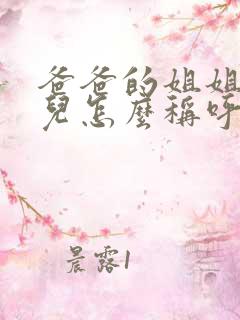 爸爸的姐姐
兒怎麼稱呼
晨露1